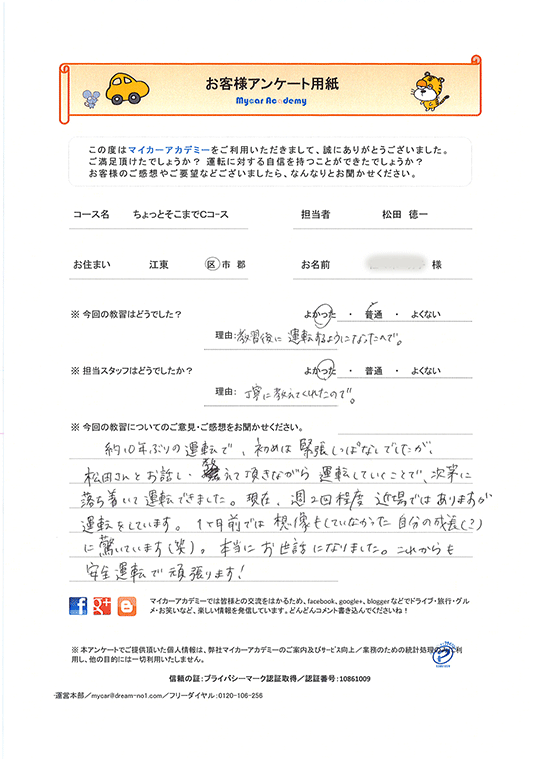 お客様アンケート用紙
Mycar Academy
この度はマイカーアカデミーをご利用いただきまして、誠にありがとうございました。
ご満足頂けたでしょうか? 運転に対する自信を持つことができたでしょうか?
お客様のご感想やご要望などございましたら、なんなりとお聞かせください。
コース名 ちょっとそこまでCコース 担当者 松田 徳一
お住まい 江東 区 市 郡 お名前 様
※ 今回の教習はどうでした? よかった ・ 普通 ・ よくない
理由: 教習後に運転するようになったので。
※ 担当スタッフはどうでしたか? よかった ・ 普通 ・ よくない
理由: 丁寧に教えてくれたので。
※ 今回の教習についてのご意見・ご感想をお聞かせください。
約10年ぶりの運転で、初めは緊張しっぱなしでしたが、
松田さんとお話し・教えて頂きながら運転していくことで、次第に
落ち着いて運転できました。現在、週2回程度 近場ではありますが
運転をしています。1ヶ月前では想像もしていなかった自分の成長(?)
に驚いています(笑)。本当にお世話になりました。これからも
安全運転で頑張ります!
マイカーアカデミーでは皆様との交流をはかるため、facebook、google+、bloggerなどでドライブ・旅行・グル
メ・お笑いなど、楽しい情報を発信しています。どんどんコメント書き込んでくださいね!
※ 本アンケートでご提供頂いた個人情報は、弊社マイカーアカデミーのご案内及びサービス向上/業務のための統計処理のみに利
用し、他の目的には一切利用いたしません。
信頼の証:プライバシーマーク認証取得/認証番号:10861009
運営本部/mycar@dream-no1.com/フリーダイヤル:0120-106-256